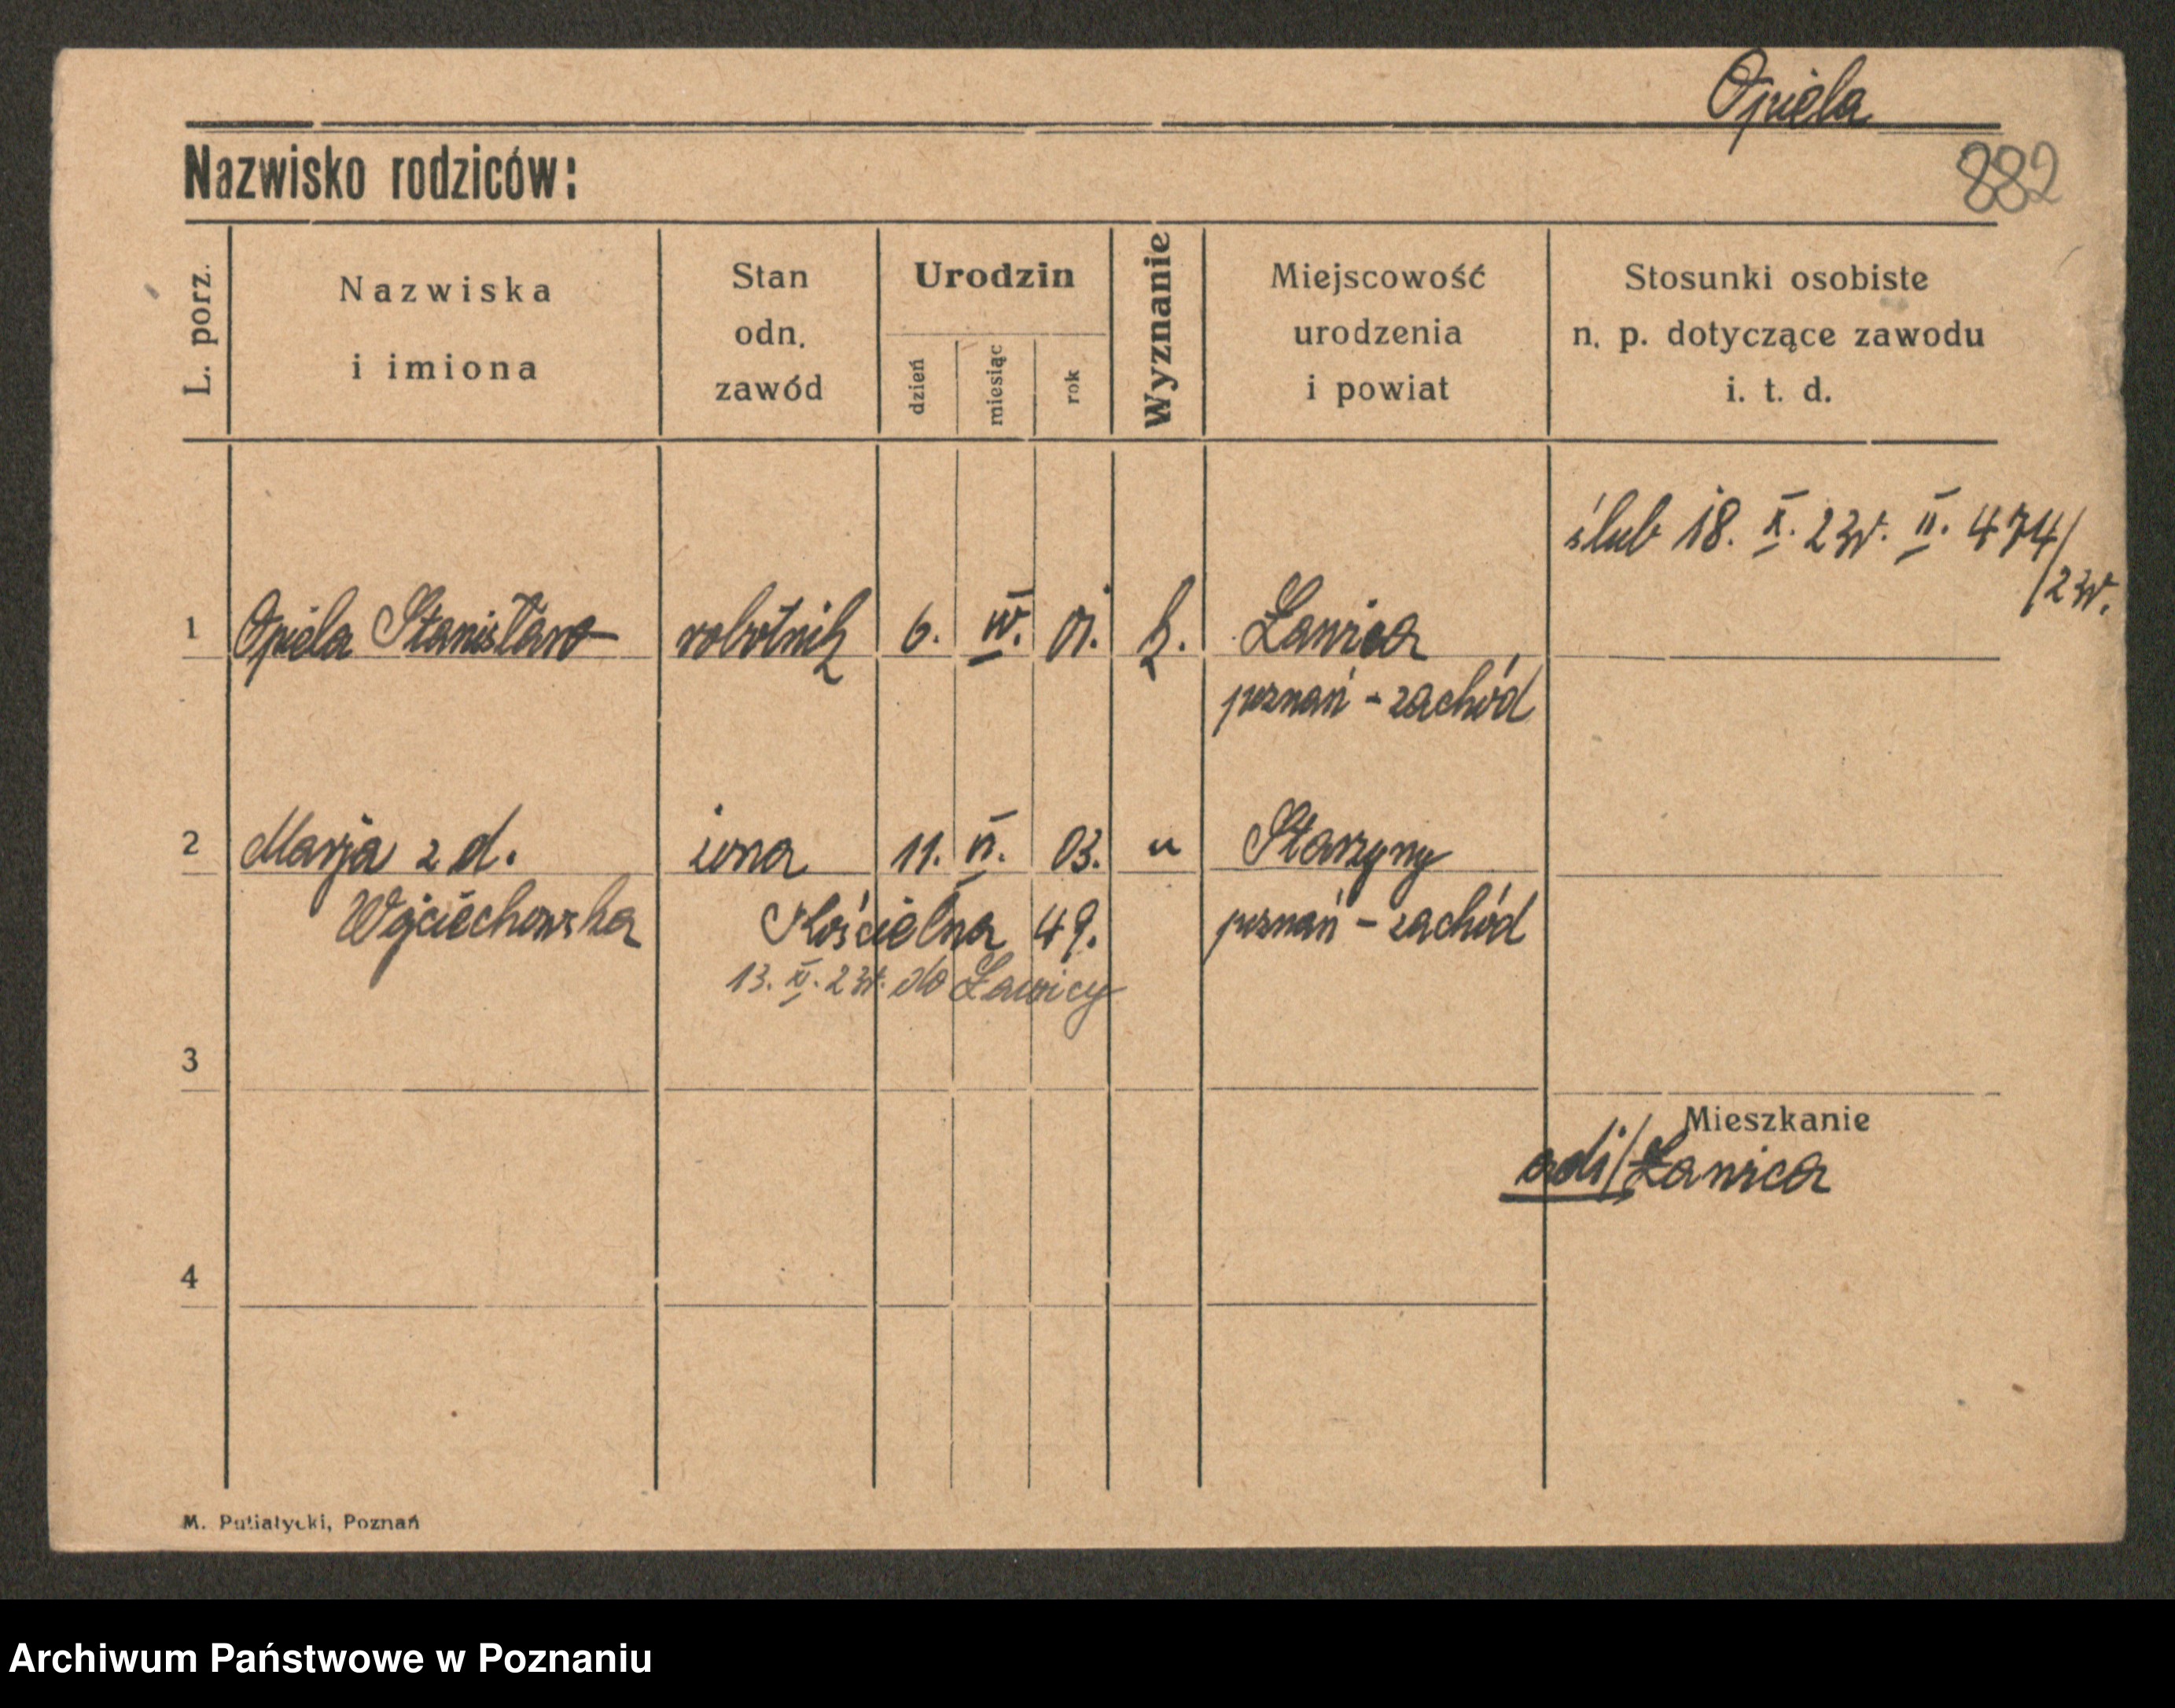 Opiela
Nazwisko rodziców:
882
L. porz.
Nazwiska
i imiona
Stan
odn.
zawód
Urodzin
dzień
miesiąc
rok
Wyznanie
Miejscowość
urodzenia
i powiat
Stosunki osobiste
n. p. dotyczące zawodu
i. t. d.
ślub 18. X. 23r. II. 474/
/23r.
1 Opiela Stanisław robotnik 6. IV. 01. k. Ławica
poznań - zachód
2 Marja z d. żona 11. VI. 03. " Starzyny
Wojciechowska Kościelna 49. poznań - zachód
13. XI. 23r. do Ławicy
3
Mieszkanie
adi/Ławica
4
M. Putiatycki, Poznań
Archiwum Państwowe w Poznaniu